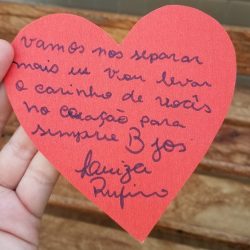 vamos nos separar
mais eu vou levar
o carinho de vocês
no coração para
sempre B jos
Rufino